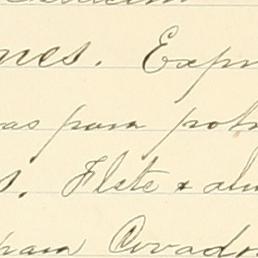 nes. Expr
as para potr
s. Flete & alm
para Covado